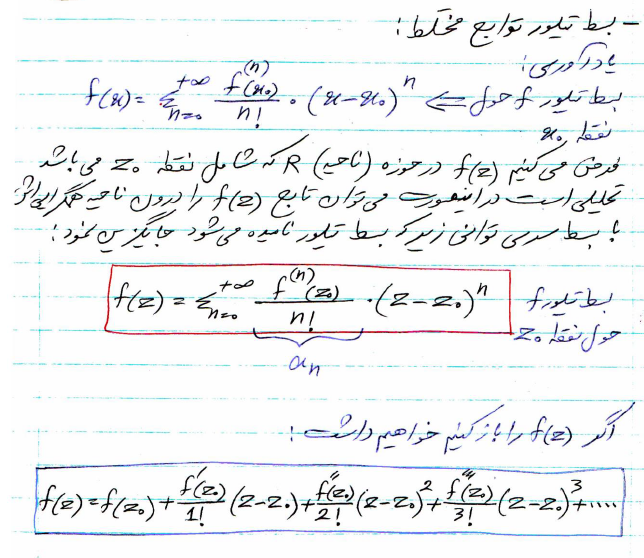 - بسط تیلور توابع مختلط:
یادآوری:
بسط تیلور f حول نقطه x₀ ⇐ f(x) = Σ_{n=0}^{+∞} f^{(n)}(x₀)/n! · (x-x₀)^n
فرض می کنیم f(z) در حوزه (ناحیه) R که شامل نقطه z₀ می باشد
تحلیلی است در اینصورت می توان تابع f(z) را درون ناحیه همگرایی اش
با بسط سری توانی زیر که بسط تیلور نامیده می شود جایگزین نمود:
بسط تیلور f حول نقطه z₀ f(z) = Σ_{n=0}^{+∞} f^{(n)}(z₀)/n! · (z-z₀)^n
a_n
اگر f(z) را باز کنیم خواهیم داشت:
f(z) = f(z₀) + f'(z₀)/1! (z-z₀) + f''(z₀)/2! (z-z₀)^2 + f'''(z₀)/3! (z-z₀)^3 + ....